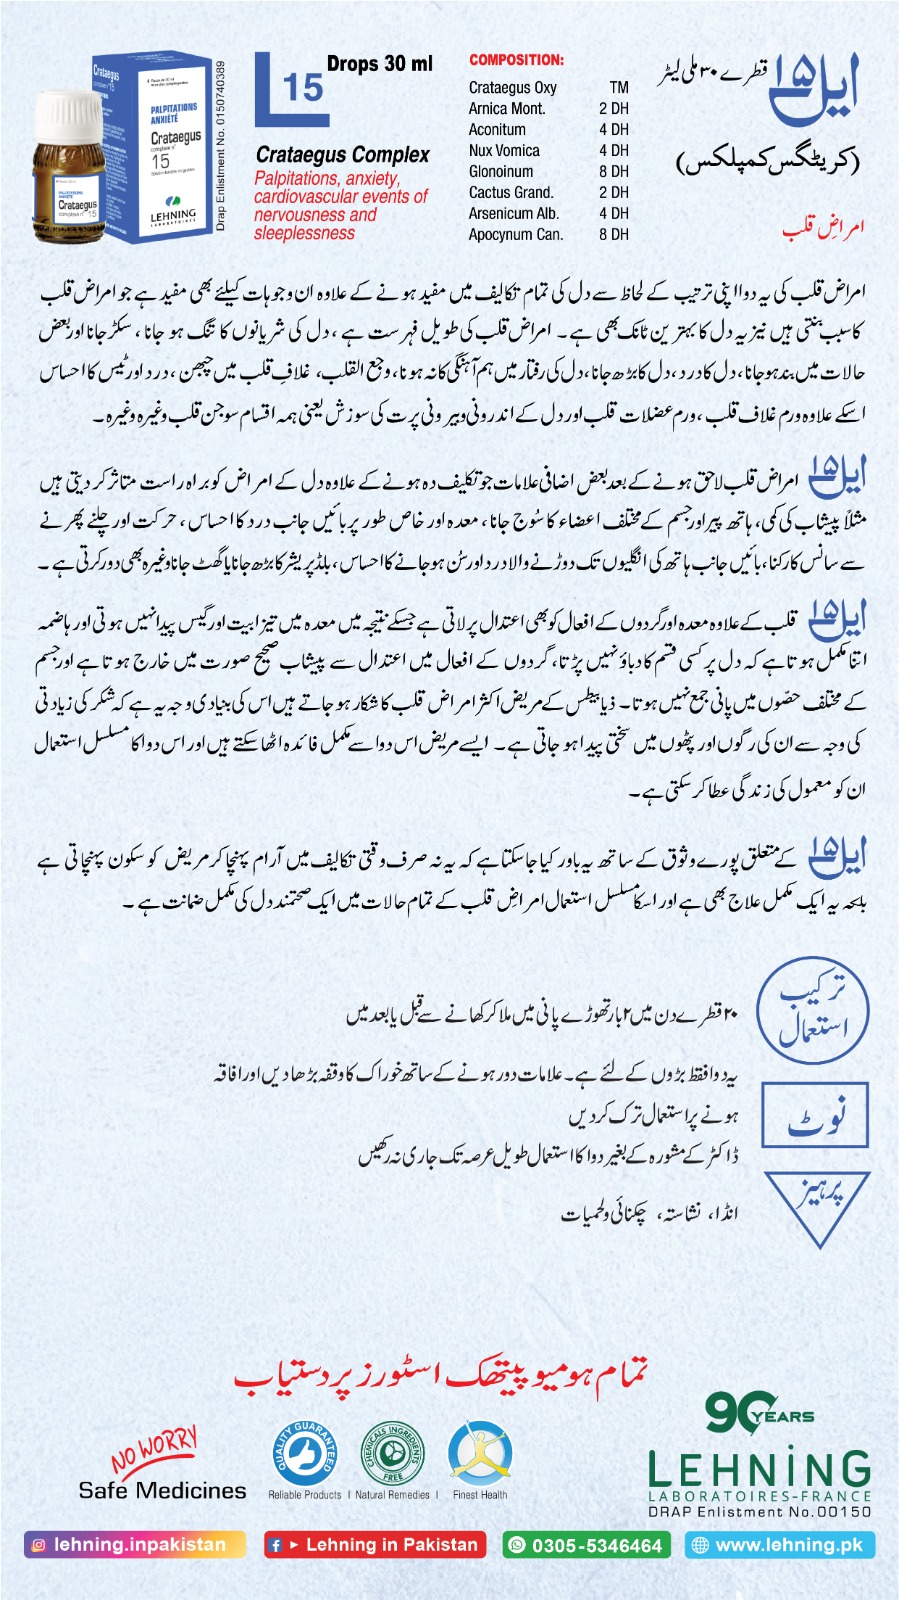 Crataegus
complexe n° 15
PALPITATIONS
ANXIÉTÉ
Crataegus
complexe n°
15
LEHNING
LABORATOIRES
PALPITATIONS
ANXIÉTÉ
Crataegus
complexe n° 15
Drap Enlistment No. 0150740389
L 15
Drops 30 ml
Crataegus Complex
Palpitations, anxiety,
cardiovascular events of
nervousness and
sleeplessness
COMPOSITION:
Crataegus Oxy TM
Arnica Mont. 2 DH
Aconitum 4 DH
Nux Vomica 4 DH
Glonoinum 8 DH
Cactus Grand. 2 DH
Arsenicum Alb. 4 DH
Apocynum Can. 8 DH
ایل ۱۵ قطرے ۳۰ ملی لیٹر
(کریٹگس کمپلکس)
امراضِ قلب
امراض قلب کی یہ دوا اپنی ترتیب کے لحاظ سے دل کی تمام تکالیف میں مفید ہونے کے علاوہ ان وجوہات کیلئے بھی مفید ہے جو امراض قلب
کا سبب بنتی ہیں نیز یہ دل کا بہترین ٹانک بھی ہے۔ امراض قلب کی طویل فہرست ہے ، دل کی شریانوں کا تنگ ہو جانا ، سکڑ جانا اور بعض
حالات میں بند ہو جانا ، دل کا درد ، دل کا بڑھ جانا ، دل کی رفتار میں ہم آہنگی کا نہ ہونا ، وجع القلب، غلافِ قلب میں چبھن ، درد اور ٹیس کا احساس
اسکے علاوہ ورم غلاف قلب ، ورم عضلات قلب اور دل کے اندرونی و بیرونی پرت کی سوزش یعنی ہمہ اقسام سوجن قلب وغیرہ وغیرہ۔
ایل ۱۵ امراض قلب لاحق ہونے کے بعد بعض اضافی علامات جو تکلیف دہ ہونے کے علاوہ دل کے امراض کو براہ راست متاثر کر دیتی ہیں
مثلاً پیشاب کی کمی، ہاتھ پیر اور جسم کے مختلف اعضاء کا سُوج جانا ، معدہ اور خاص طور پر بائیں جانب درد کا احساس ، حرکت اور چلنے پھرنے
سے سانس کا رکنا ، بائیں جانب ہاتھ کی انگلیوں تک دوڑنے والا درد اور سُن ہو جانے کا احساس ، بلڈ پریشر کا بڑھ جانا یا گھٹ جانا وغیرہ بھی دور کرتی ہے ۔
ایل ۱۵ قلب کے علاوہ معدہ اور گردوں کے افعال کو بھی اعتدال پر لاتی ہے جسکے نتیجہ میں معدہ میں تیزابیت اور گیس پیدا نہیں ہوتی اور ہاضمہ
اتنا مکمل ہوتا ہے کہ دل پر کسی قسم کا دباؤ نہیں پڑتا، گردوں کے افعال میں اعتدال سے پیشاب صحیح صورت میں خارج ہوتا ہے اور جسم
کے مختلف حصّوں میں پانی جمع نہیں ہوتا ۔ ذیابیطس کے مریض اکثر امراض قلب کا شکار ہو جاتے ہیں اس کی بنیادی وجہ یہ ہے کہ شکر کی زیادتی
کی وجہ سے ان کی رگوں اور پٹھوں میں سختی پیدا ہو جاتی ہے ۔ ایسے مریض اس دوا سے مکمل فائدہ اٹھا سکتے ہیں اور اس دوا کا مسلسل استعمال
ان کو معمول کی زندگی عطا کر سکتی ہے ۔
ایل ۱۵ کے متعلق پورے وثوق کے ساتھ یہ باور کیا جا سکتا ہے کہ یہ نہ صرف وقتی تکالیف میں آرام پہنچا کر مریض کو سکون پہنچاتی ہے
بلکہ یہ ایک مکمل علاج بھی ہے اور اسکا مسلسل استعمال امراضِ قلب کے تمام حالات میں ایک صحتمند دل کی مکمل ضمانت ہے ۔
ترکیب
استعمال
۲۰ قطرے دن میں ۲ بار تھوڑے پانی میں ملا کر کھانے سے قبل یا بعد میں
نوٹ
یہ دوا فقط بڑوں کے لئے ہے۔ علامات دور ہونے کے ساتھ خوراک کا وقفہ بڑھا دیں اور افاقہ
ہونے پر استعمال ترک کر دیں
ڈاکٹر کے مشورہ کے بغیر دوا کا استعمال طویل عرصہ تک جاری نہ رکھیں
پرہیز
انڈا، نشاستہ، چکنائی و لحمیات
تمام ہومیوپیتھک اسٹورز پر دستیاب
NO WORRY
Safe Medicines
QUALITY GUARANTEED
Reliable Products
CHEMICALS INGREDIENTS FREE
Natural Remedies
Finest Health
90 YEARS
LEHNING
LABORATOIRES-FRANCE
DRAP Enlistment No. 00150
lehning.inpakistan
Lehning in Pakistan
0305-5346464
www.lehning.pk